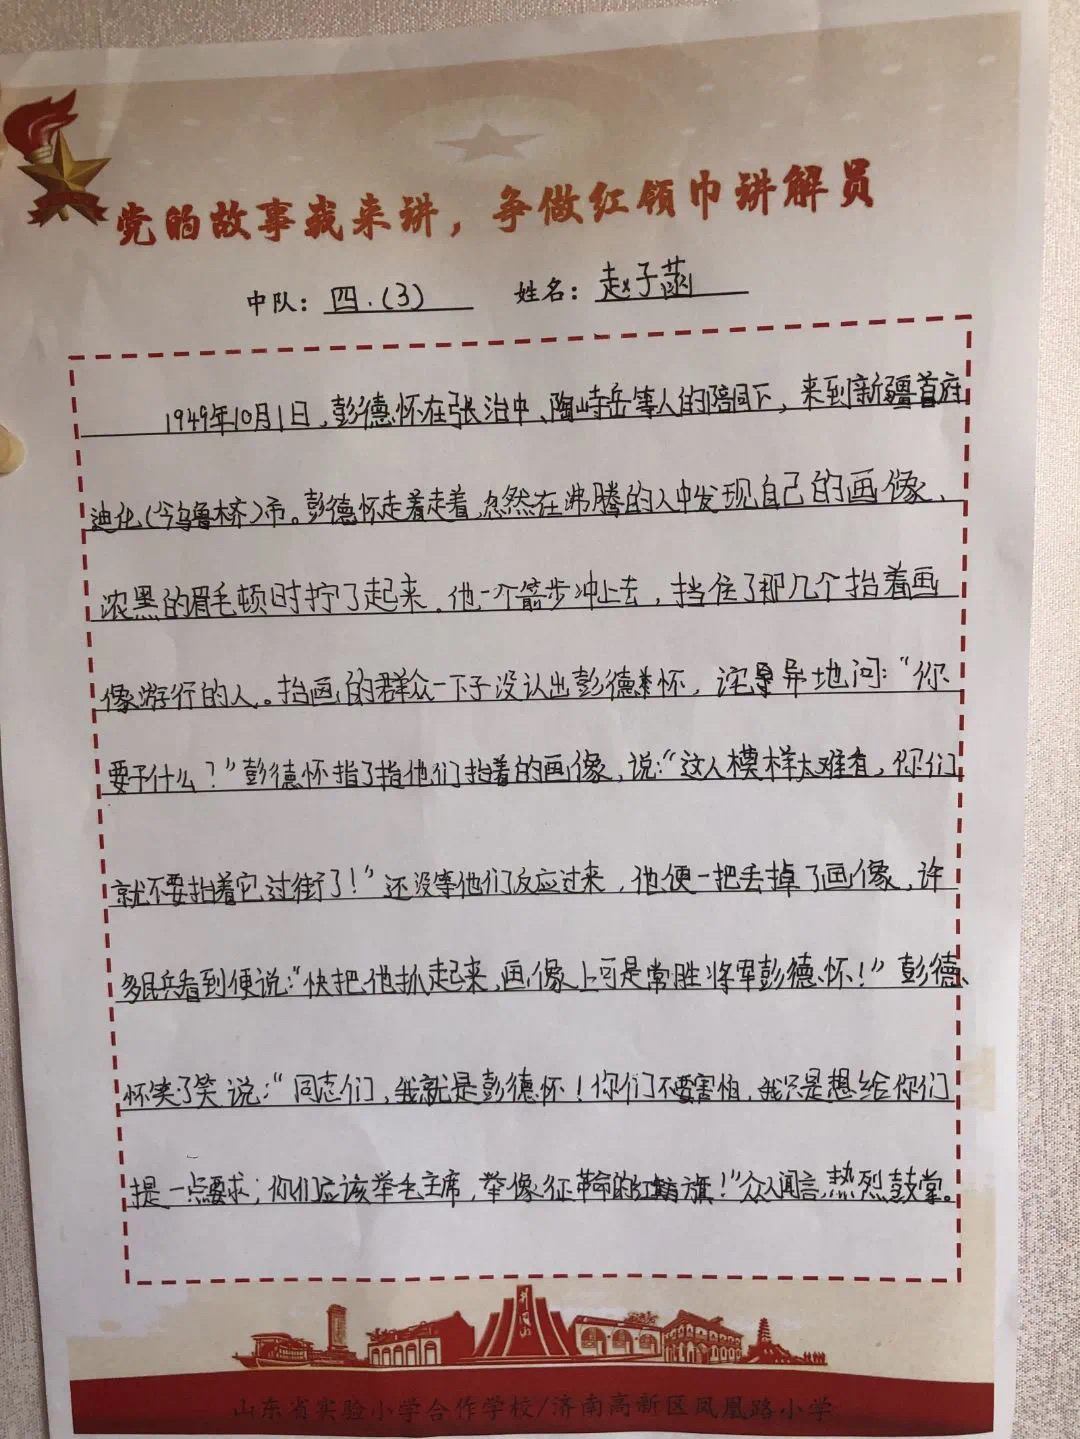 党的故事我来讲，争做红领巾讲解员
中队：四.(3) 姓名：赵子菡
1949年10月1日，彭德怀在张治中、陶峙岳等人的陪同下，来到新疆首府
迪化(今乌鲁木齐)市。彭德怀走着走着，忽然在沸腾的人中发现自己的画像，
浓黑的眉毛顿时拧了起来。他一个箭步冲上去，挡住了那几个抬着画
像游行的人。抬画的群众一下子没认出彭德怀，诧异地问：“你
要干什么？”彭德怀指了指他们抬着的画像，说：“这人模样太难看，你们
就不要抬着它过街了！”还没等他们反应过来，他便一把丢掉了画像，许
多民兵看到便说：“快把他抓起来，画像上可是常胜将军彭德怀！”彭德
怀笑了笑说：“同志们，我就是彭德怀！你们不要害怕，我只是想给你们
提一点要求；你们应该举毛主席，举像征革命的红旗！”众人闻言，热烈鼓掌。
井冈山
山东省实验小学合作学校/济南高新区凤凰路小学